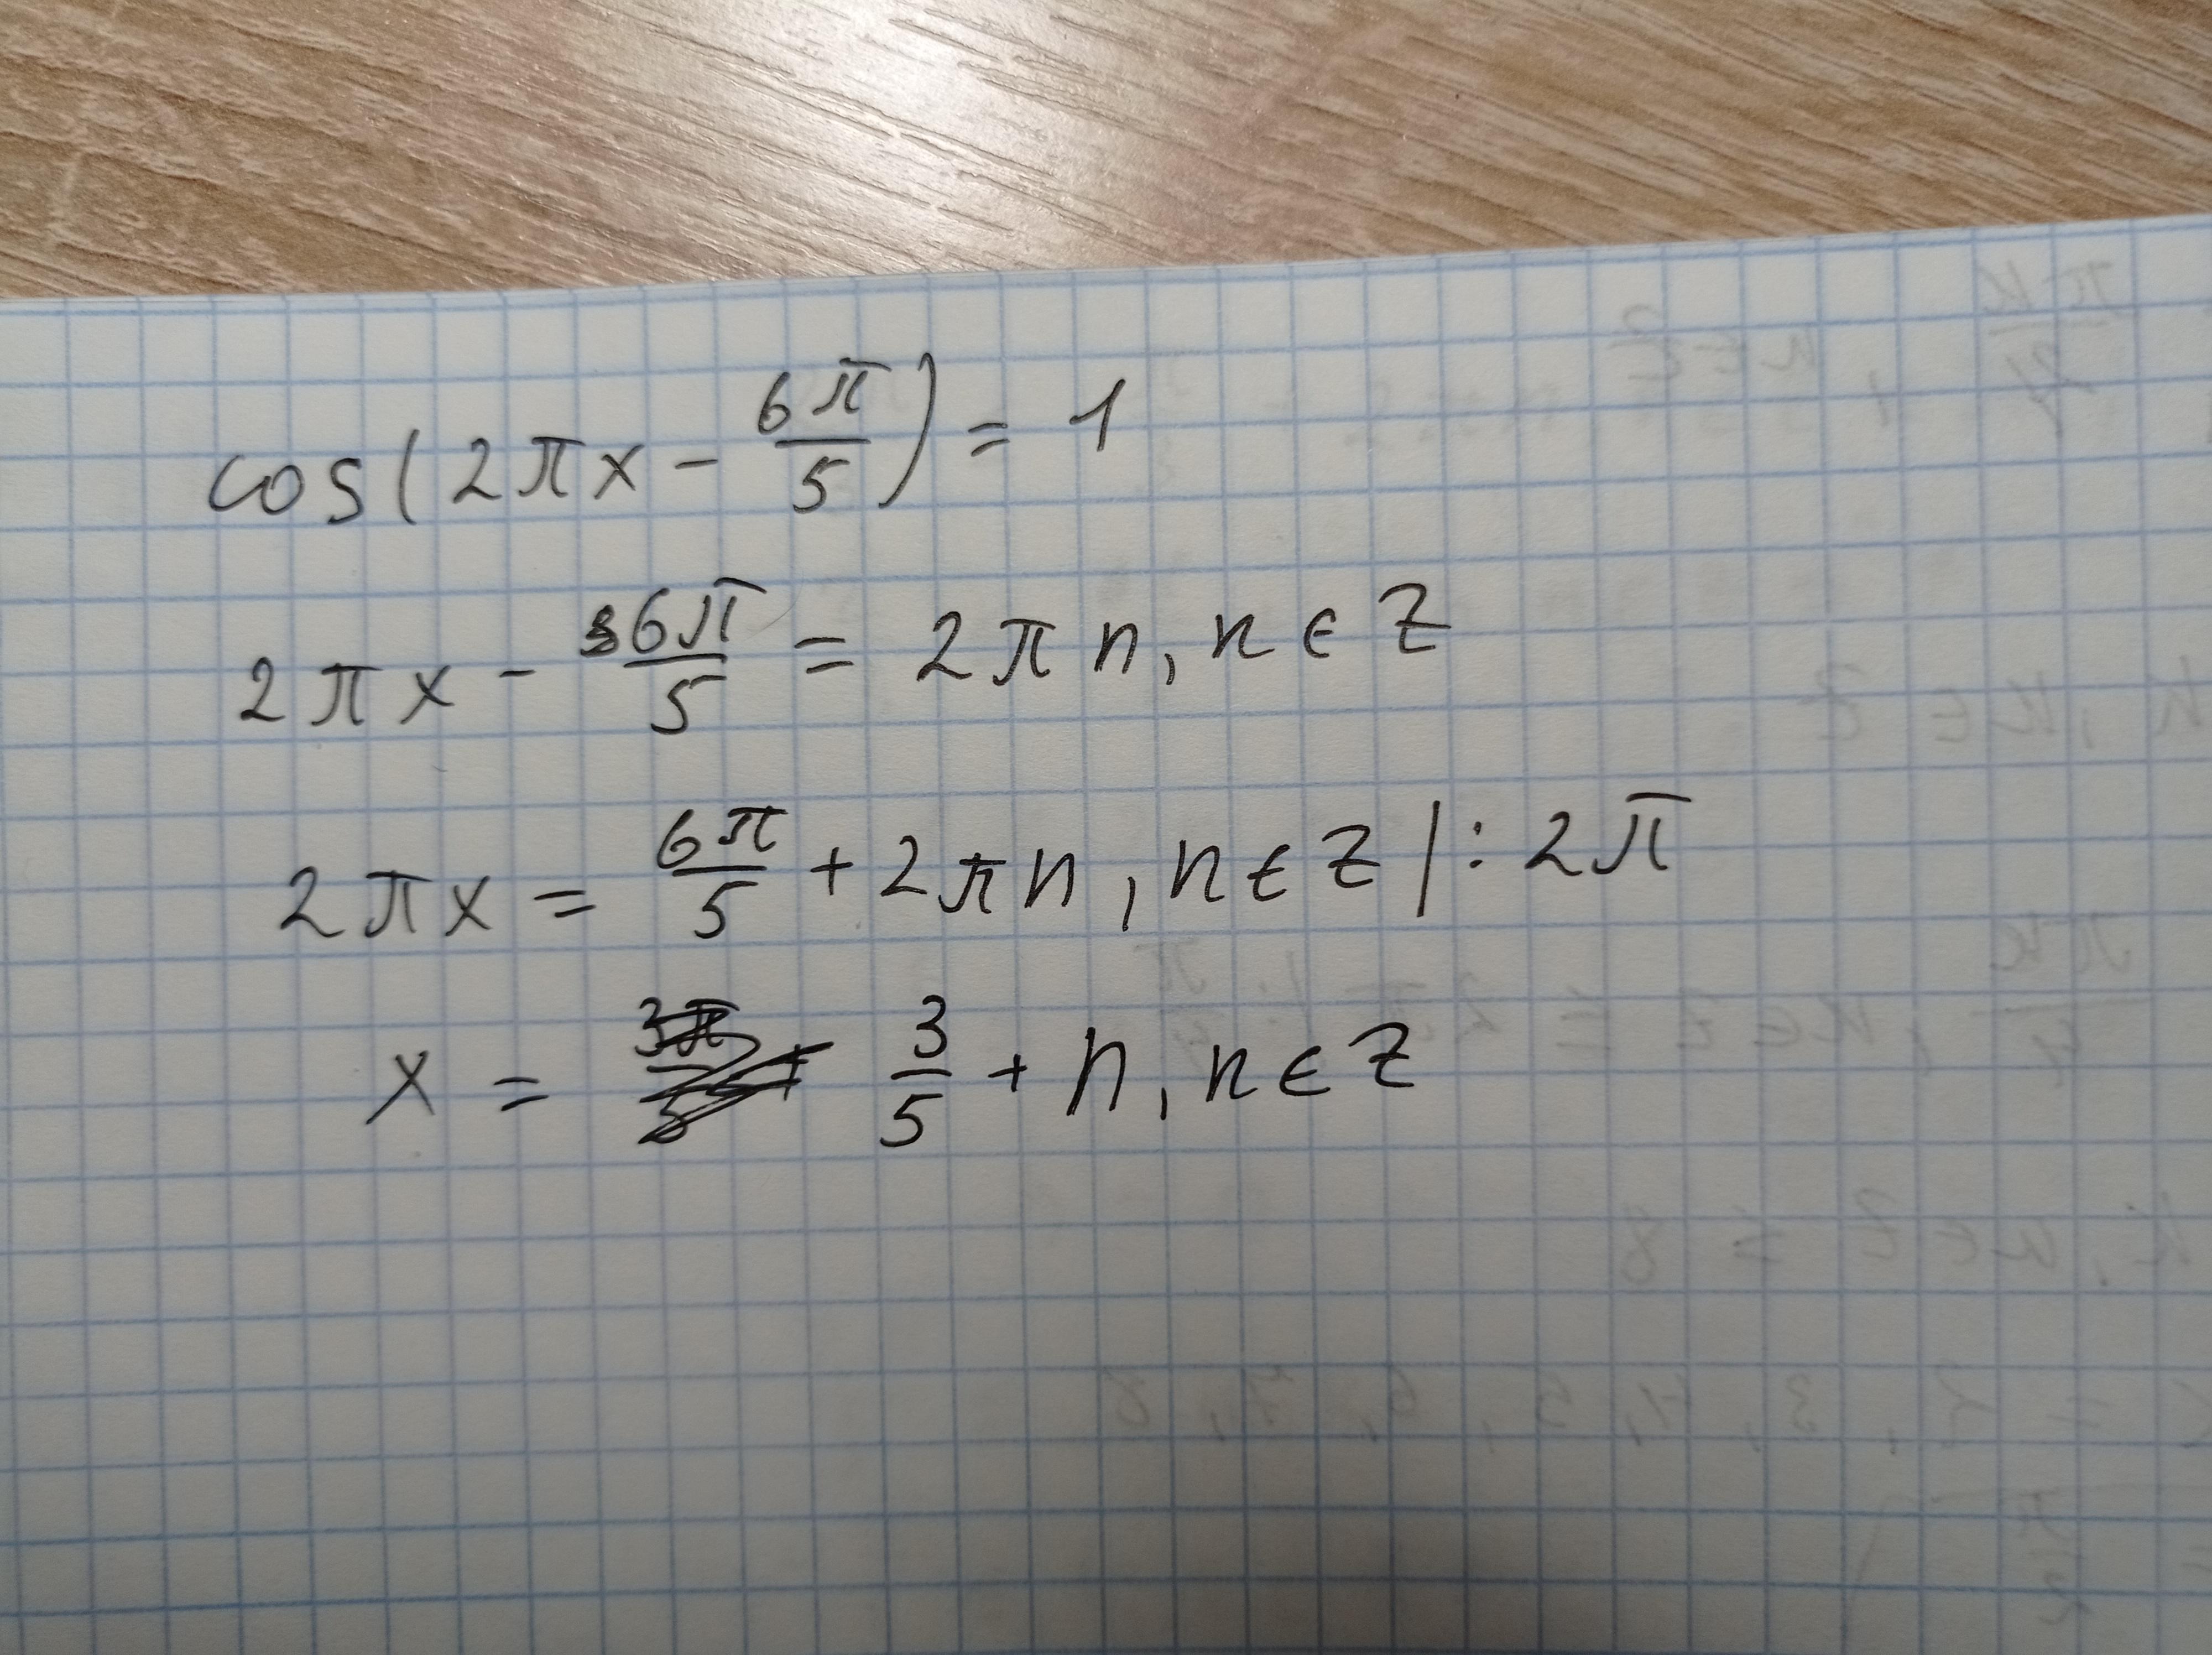 cos(2πx - 6π/5) = 1
2πx - 6π/5 = 2πn, n ∈ Z
2πx = 6π/5 + 2πn, n ∈ Z | : 2π
x = 3/5 + n, n ∈ Z